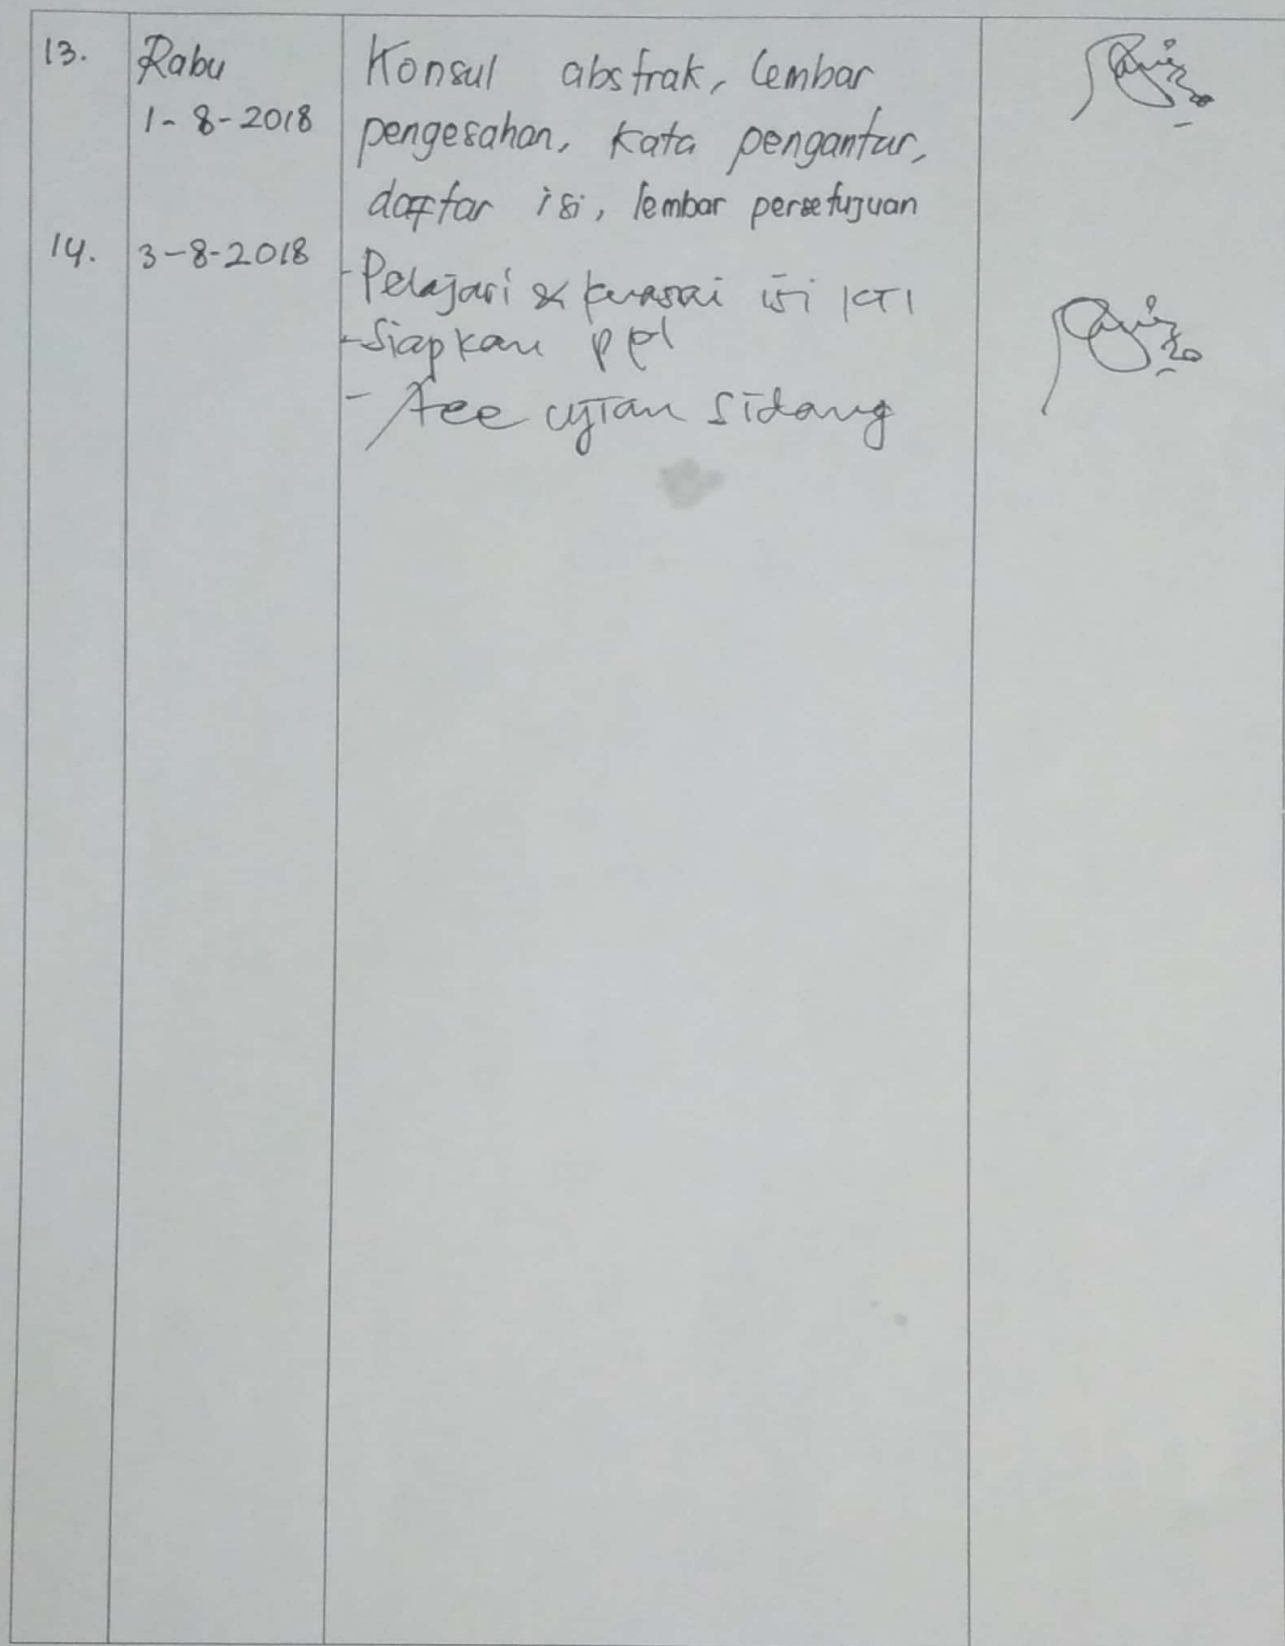 13. Rabu Konsul abstrak, lembar
1-8-2018 pengesahan, Kata pengantar,
daftar isi, lembar persetujuan
14. 3-8-2018
- Pelajari & kuasai isi KTI
- Siapkan ppt
- Acc ujian sidang